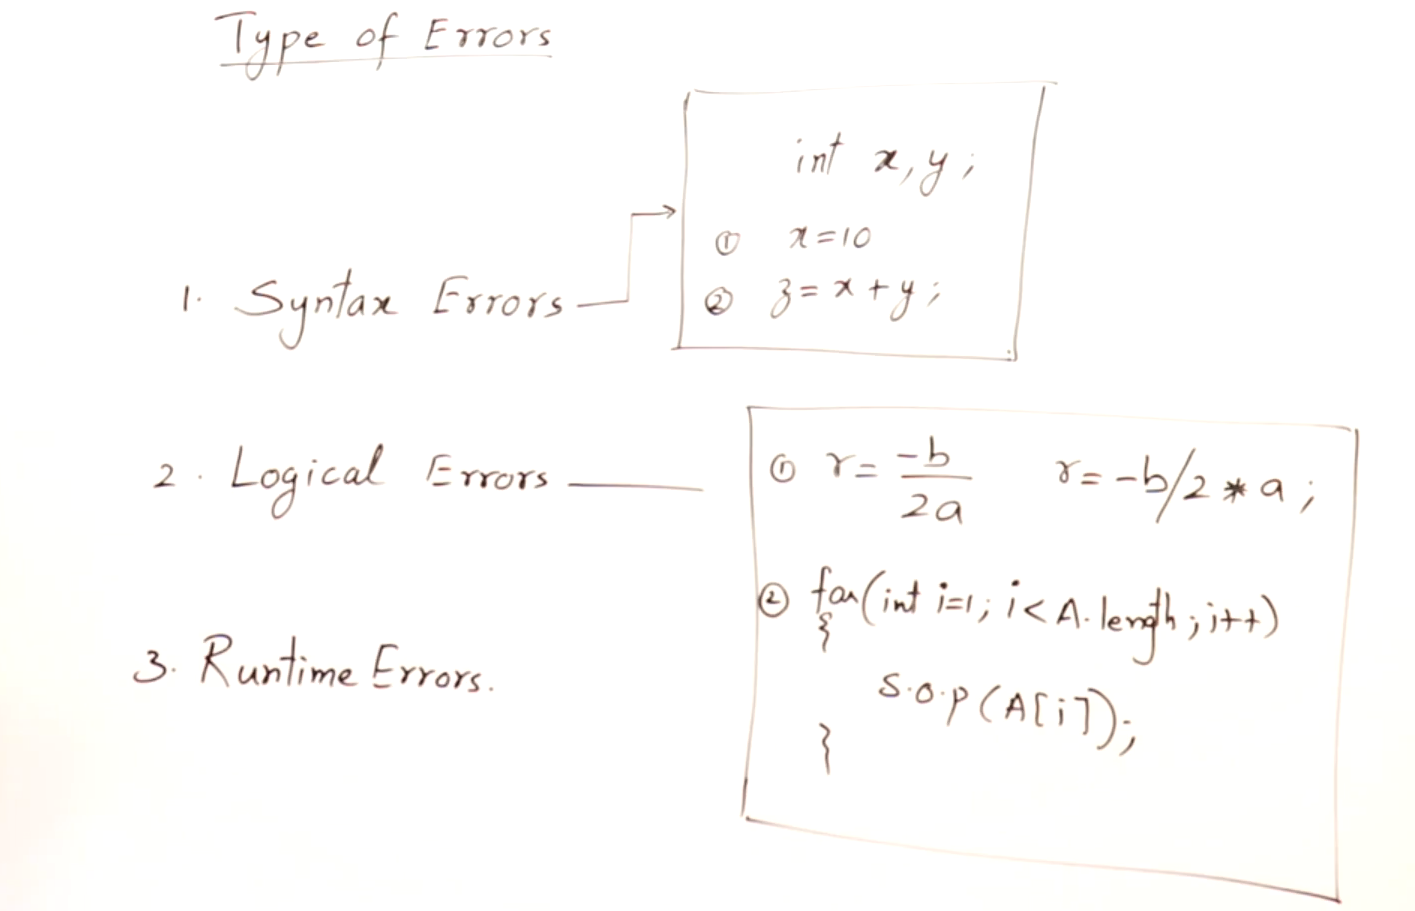 Type of Errors
1. Syntax Errors
int x, y;
① x=10
② z= x + y;
2. Logical Errors
① r= -b
2a
r= -b/2 * a;
② for(int i=1; i<A.length; i++)
{
S.o.p(A[i]);
}
3. Runtime Errors.